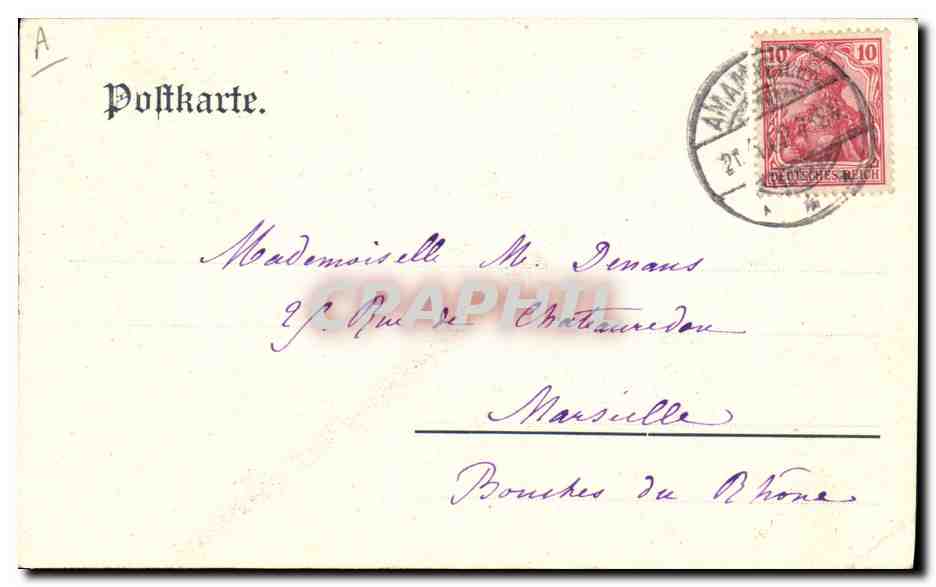 A
Postkarte.
10 10
DEUTSCHES REICH
21.
Mademoiselle M. Denans
25. Rue de Chateauredon
CRAPHIL
Marseille
Bouches du Rhône